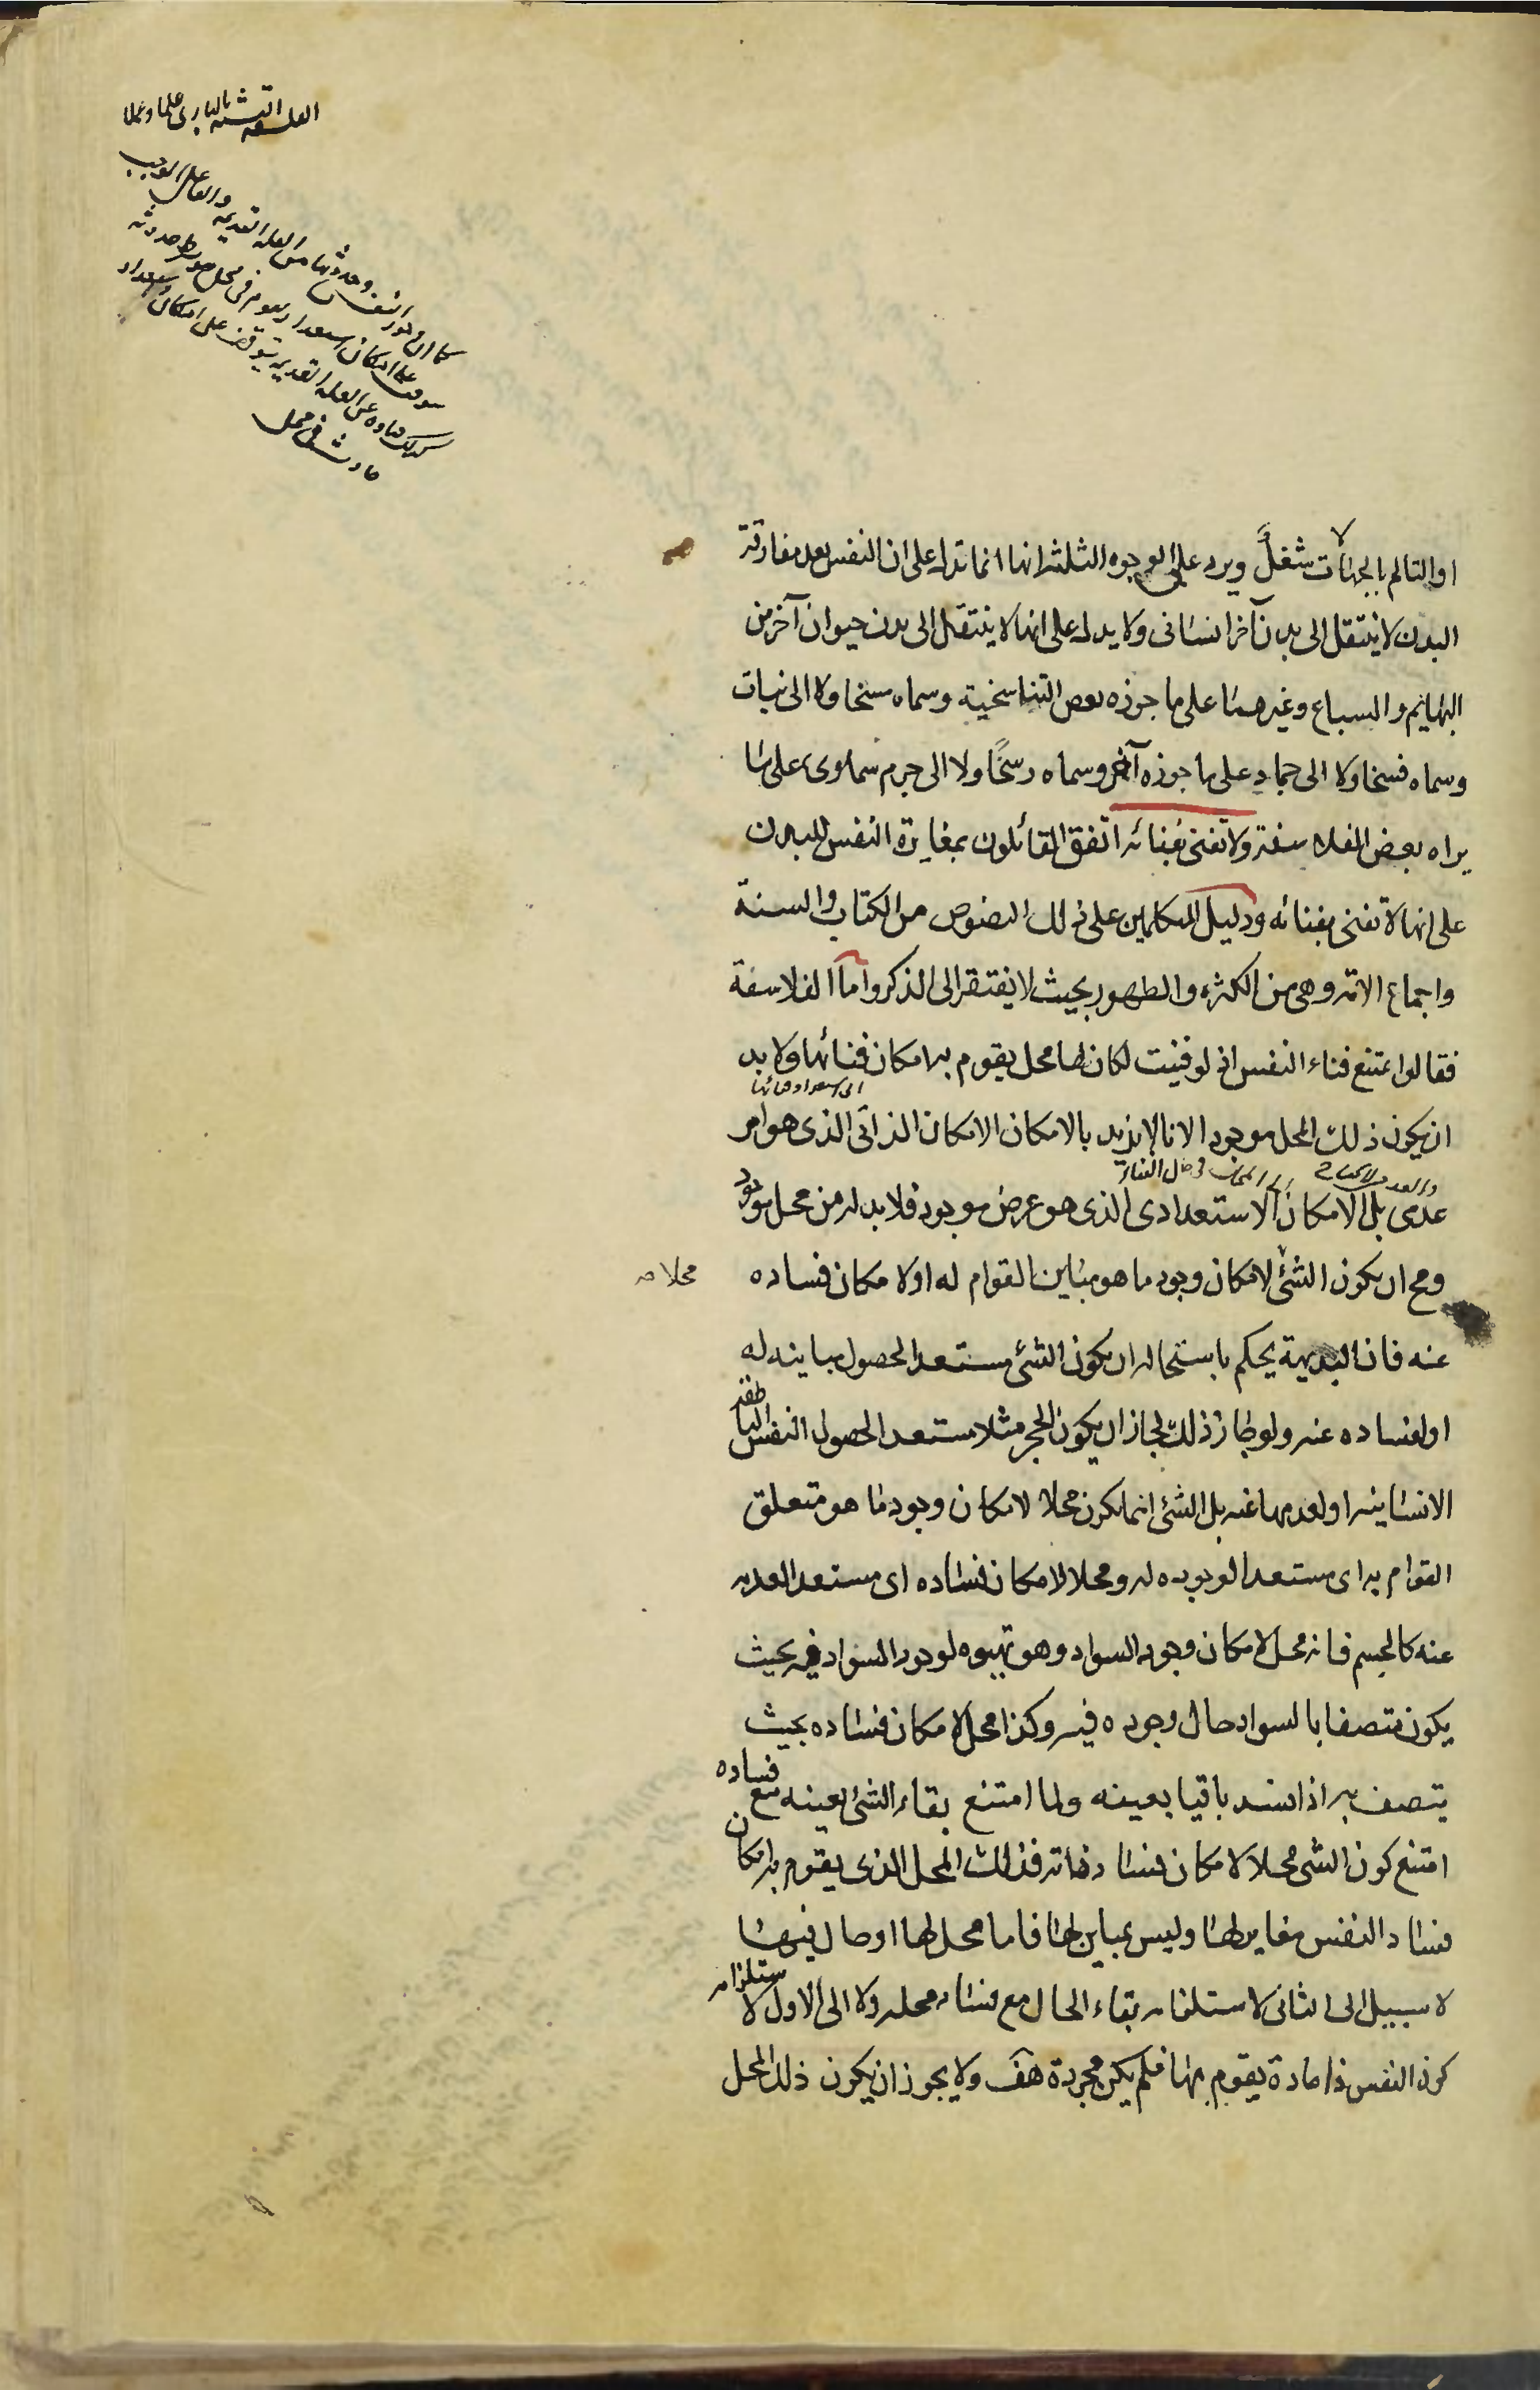 الفلسفة التشبه بالباري علما وعملا
كما ان صدور النفس وحدوثها من العلة القديمة والفاعل الواجب
على امكان استعداد يقوم في محل هو حدوثه
كذلك فناؤه عن العلة القديمة يتوقف على امكان واستعداد
حادث في محل
او التالم بالجهالات شغل ويرد على الوجوه الثلثة انها انما تدل على ان النفس بعد مفارقة
البدن لا ينتقل الى بدن آخر انسانى ولا يدل على انها لا ينتقل الى بدن حيوان آخر من
البهايم والسباع وغيرهما على ما جوزه بعض التناسخية وسماه مسخا ولا الى نبات
وسماه فسخا ولا الى جماد على ما جوزه آخر وسماه رسخًا ولا الى جرم سماوى على ما
يراه بعض الفلاسفة ولا تفنى بفنائه اتفق القائلون بمغايرة النفس للبدن
على انها لا تفنى بفنائه ودليل المتكلمين على ذلك النصوص من الكتاب والسنة
واجماع الامة وهى من الكثرة والظهور بحيث لا يفتقر الى الذكر وأما الفلاسفة
فقالوا يمتنع فناء النفس اذ لو فنيت لكان لها محل يقوم به امكان فنائها ولا بد
اى استعداد فنائها
ان يكون ذلك المحل موجودا لانا لا نريد بالامكان الامكان الذاتى الذى هو امر
والعدم لا يحتاج الى المحل
عدمى بل الامكان الاستعدادى الذى هو عرض موجود فلا بد له من محل موجود
ومح ان يكون الشئ لامكان وجود ما هو مباين القوام له او لامكان فساده
محلا صح
عنه فان البديهة يحكم باستحالة ان يكون الشئ مستعدا لحصول مباينه له
او لفساده عنه ولو جاز ذلك لجاز ان يكون الحجر مثلا مستعدا لحصول النفس الناطقة
الانسانية او لعدمها عنه بل الشئ انما يكون محلا لامكان وجود ما هو متعلق
القوام به اى مستعدا لوجوده له ومحلا لامكان فساده اى مستعدا لعدمه
عنه كالجسم فانه محل لامكان وجود السواد وهو تهيوه لوجود السواد فيه بحيث
يكون متصفا بالسواد حال وجوده فيه وكذا محل لامكان فساده بحيث
يتصف به اذا فسد باقيا بعينه ولما امتنع بقاء الشئ بعينه مع فساده
امتنع كون الشئ محلا لامكان فساد ذاته فذلك المحل الذى يقوم به امكان
فساد النفس مغاير لها وليس بمباين لها فاما محل لها او حال فيها
لا سبيل الى الثانى لاستلزامه بقاء الحال مع فساد محله ولا الى الاول لاستلزامه
كون النفس ذا مادة يقوم بها فلم يكن مجردة هف ولا يجوز ان يكون ذلك المحل